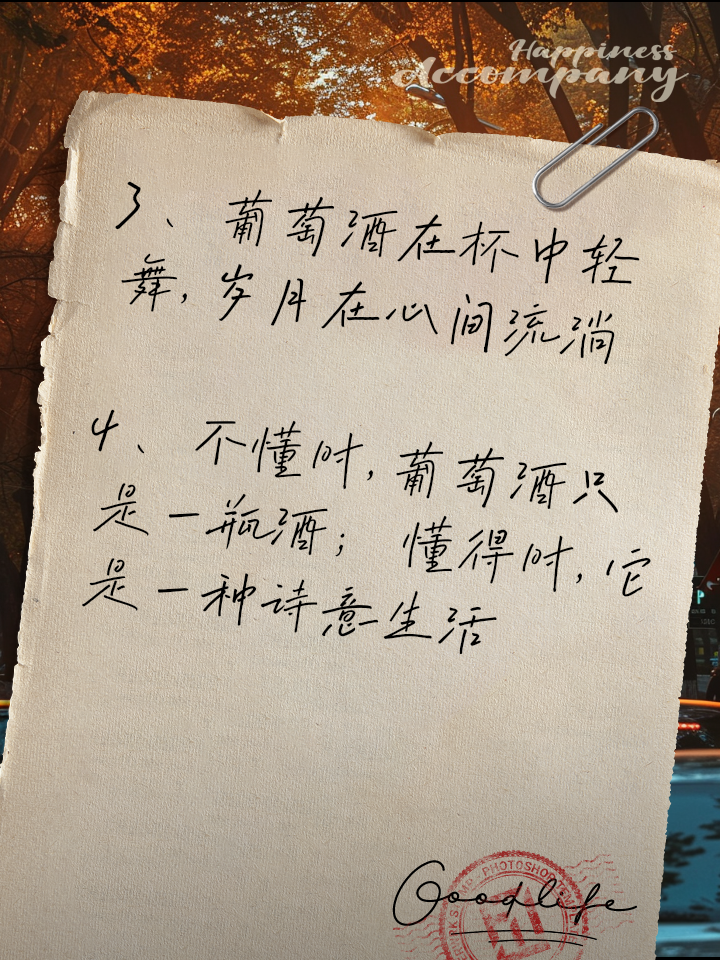 Happiness
Accompany
3、葡萄酒在杯中轻
舞,岁月在心间流淌
4、不懂时,葡萄酒只
是一瓶酒; 懂得时,它
是一种诗意生活
PHOTOSHOP
Goodlife